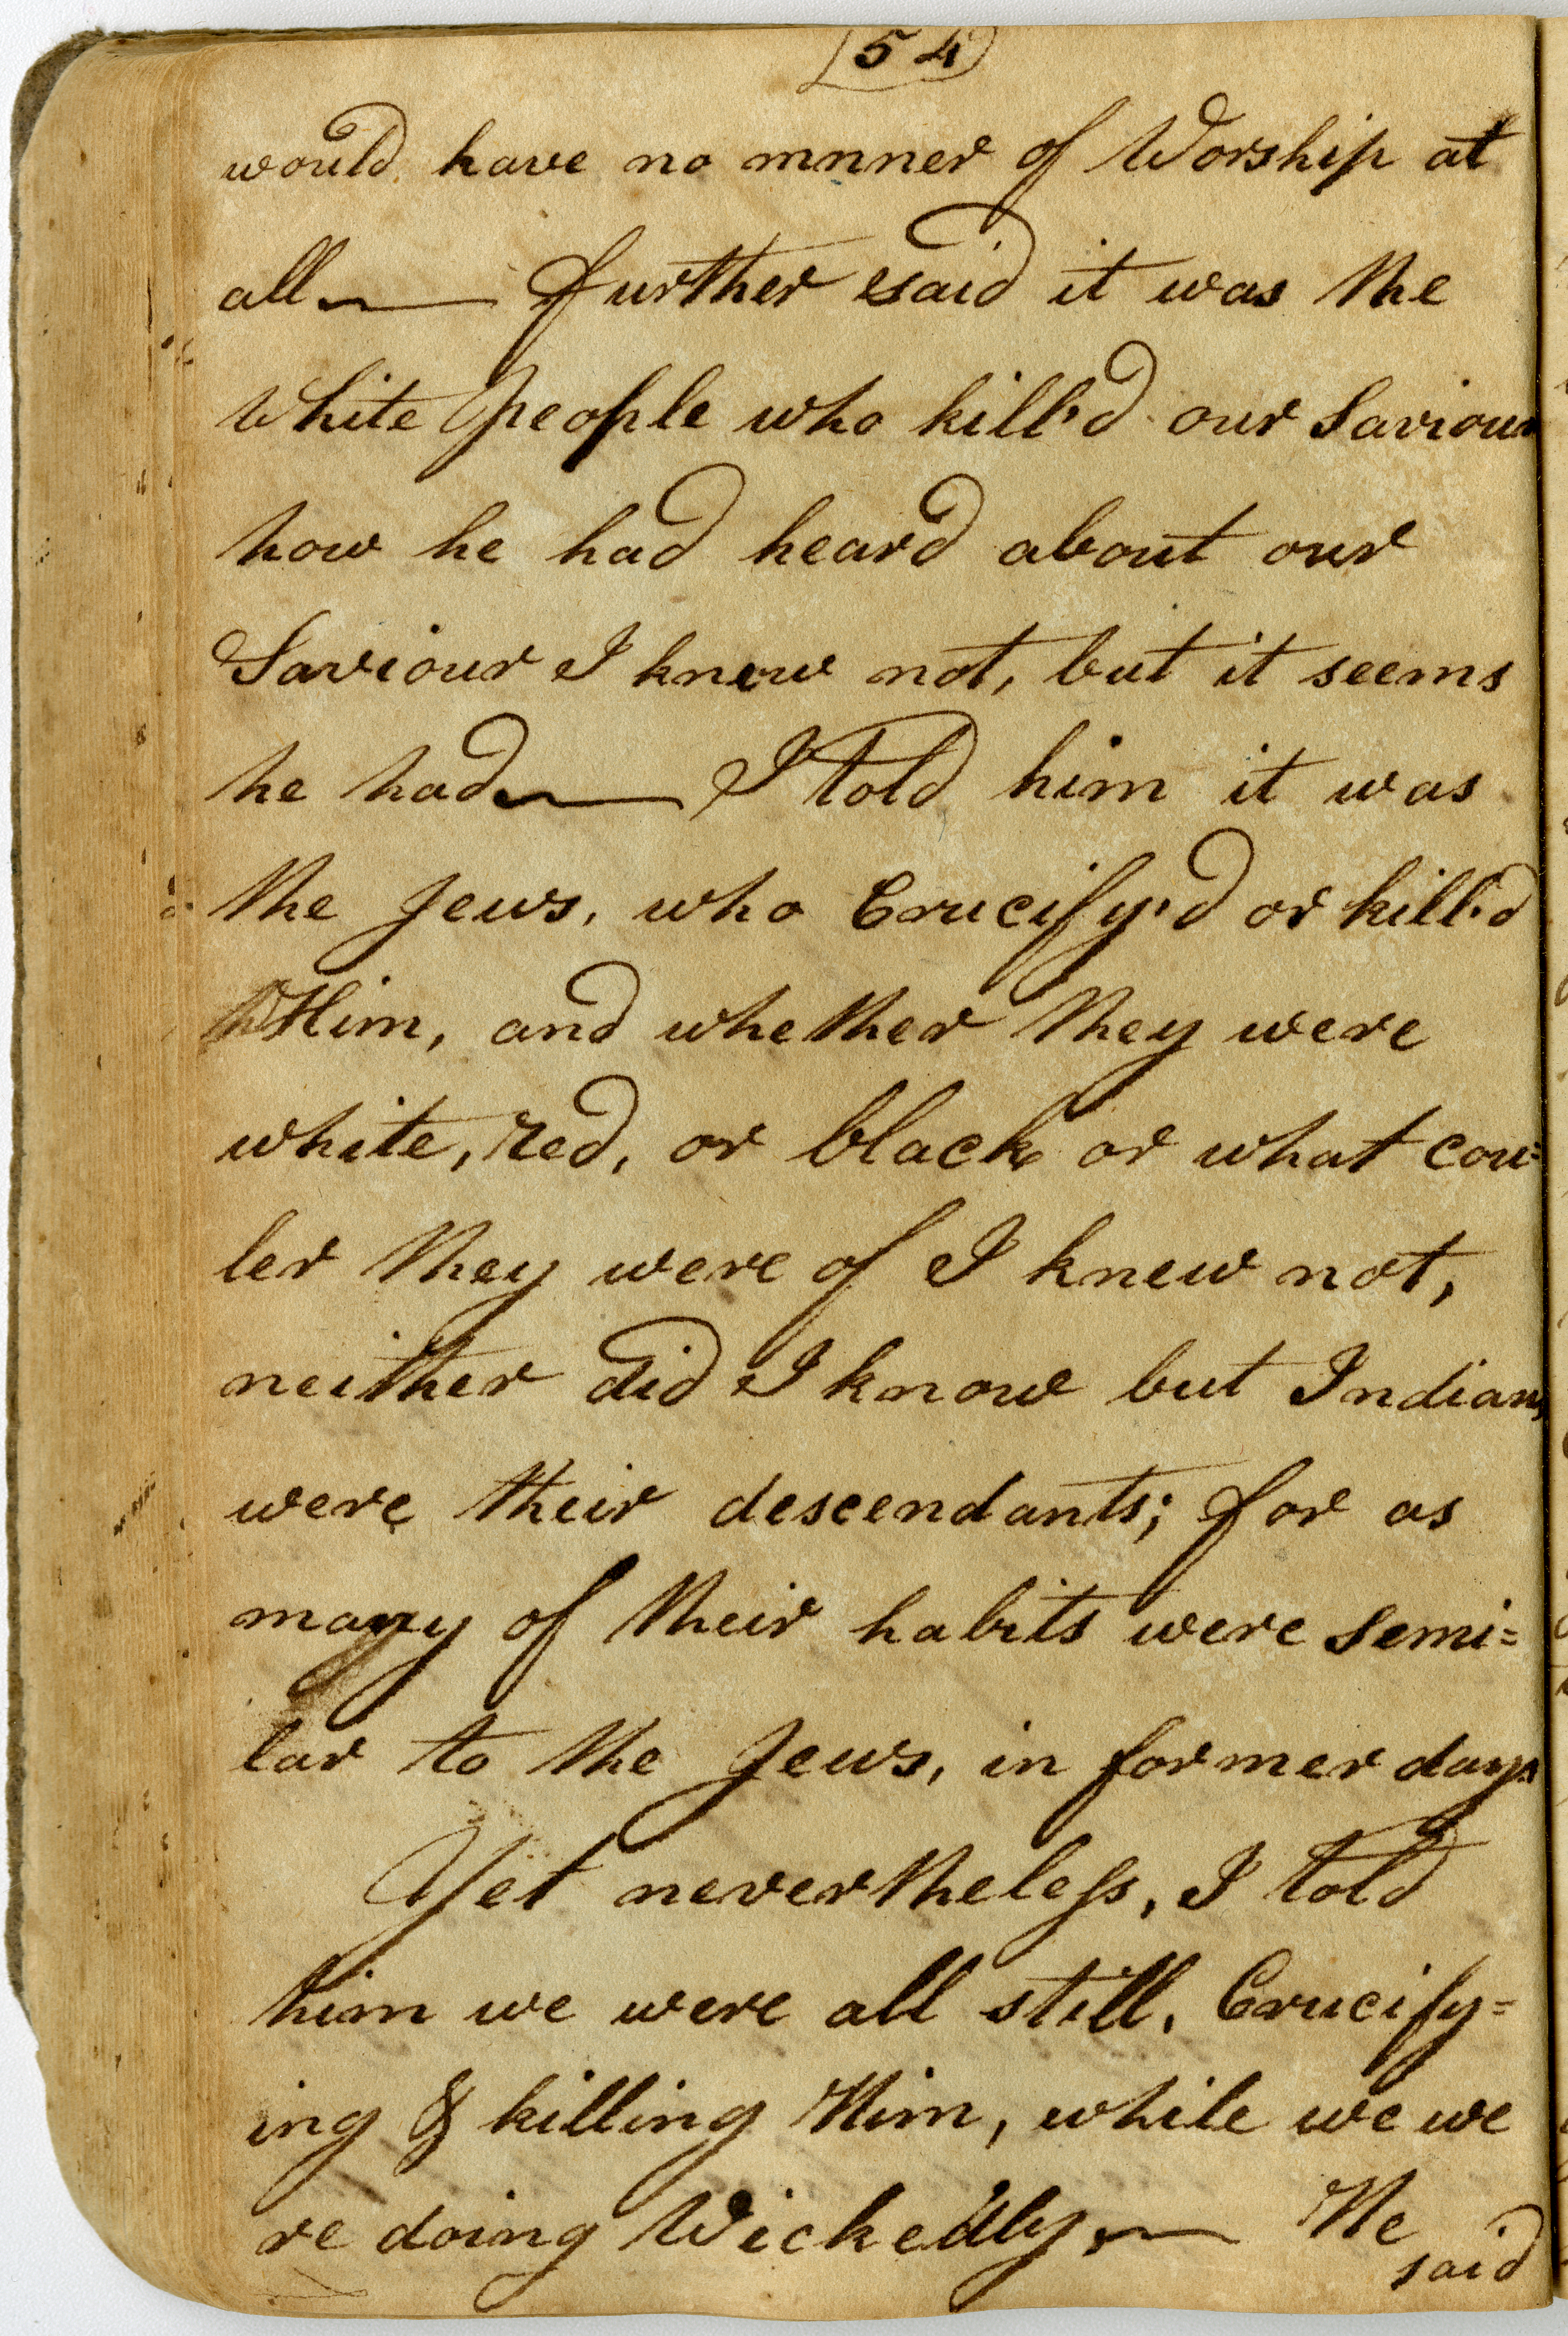 54
would have no mnner of Worship at
all — further said it was the
White people who kill'd our Saviour
how he had heard about our
Saviour I knew not, but it seems
he had — I told him it was
the Jews, who Crucify'd or kill'd
Him, and whether they were
white, red, or black or what cou=
ler they were of I knew not,
neither did I know but Indians
were their descendants; for as
many of their habits were semi=
lar to the Jews, in former days
Yet nevertheless, I told
him we were all still, Crucify=
ing & killing Him, while we we
re doing Wickedly, — He
said